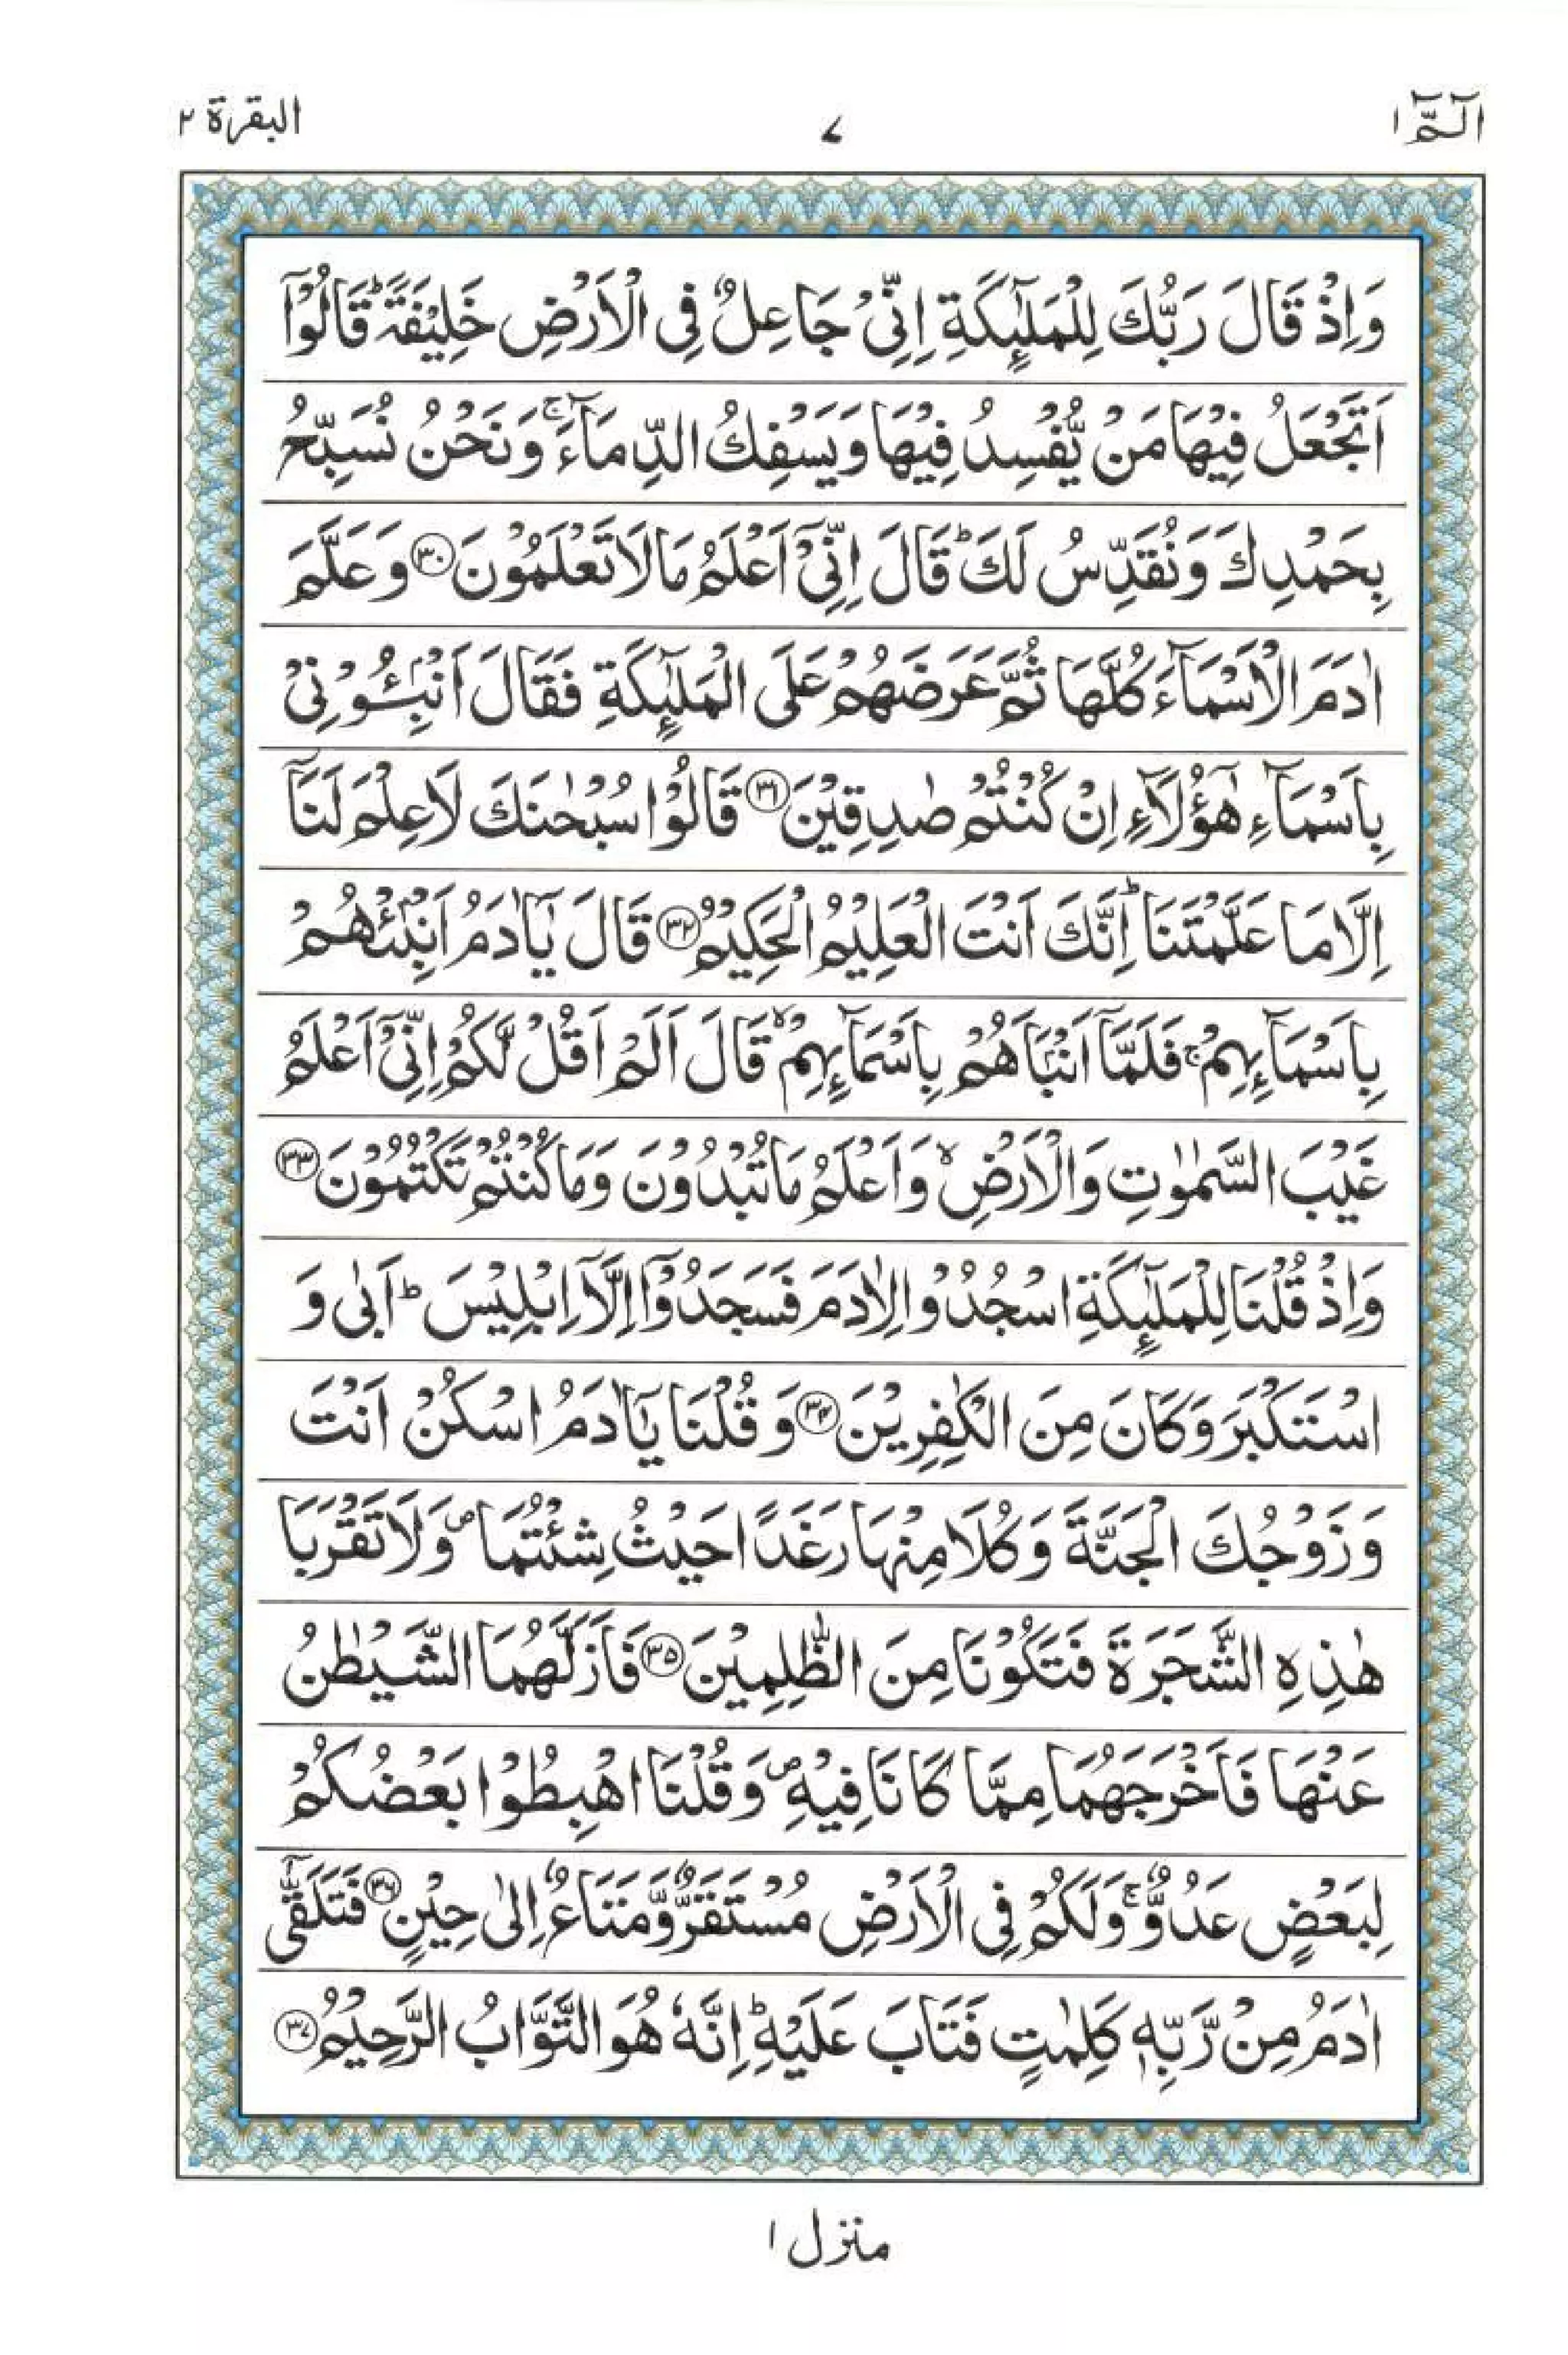 الٓمّٓ ١
٧
البقرة ٢
وَاِذْ قَالَ رَبُّكَ لِلْمَلٰٓئِكَةِ اِنِّیْ جَاعِلٌ فِی الْاَرْضِ خَلِیْفَةً ؕ قَالُوْۤا
اَتَجْعَلُ فِیْهَا مَنْ یُّفْسِدُ فِیْهَا وَیَسْفِكُ الدِّمَآءَ ۚ وَنَحْنُ نُسَبِّحُ
بِحَمْدِكَ وَنُقَدِّسُ لَكَ ؕ قَالَ اِنِّیْۤ اَعْلَمُ مَا لَا تَعْلَمُوْنَ ﴿۳۰﴾ وَعَلَّمَ
اٰدَمَ الْاَسْمَآءَ كُلَّهَا ثُمَّ عَرَضَهُمْ عَلَی الْمَلٰٓئِكَةِ فَقَالَ اَنْۢبِـُٔوْنِیْ
بِاَسْمَآءِ هٰۤؤُلَآءِ اِنْ كُنْتُمْ صٰدِقِیْنَ ﴿۳۱﴾ قَالُوْا سُبْحٰنَكَ لَا عِلْمَ لَنَاۤ
اِلَّا مَا عَلَّمْتَنَا ؕ اِنَّكَ اَنْتَ الْعَلِیْمُ الْحَكِیْمُ ﴿۳۲﴾ قَالَ یٰۤاٰدَمُ اَنْۢبِئْهُمْ
بِاَسْمَآئِهِمْ ۚ فَلَمَّاۤ اَنْۢبَاَهُمْ بِاَسْمَآئِهِمْ ۙ قَالَ اَلَمْ اَقُلْ لَّكُمْ اِنِّیْۤ اَعْلَمُ
غَیْبَ السَّمٰوٰتِ وَالْاَرْضِ ۙ وَاَعْلَمُ مَا تُبْدُوْنَ وَمَا كُنْتُمْ تَكْتُمُوْنَ ﴿۳۳﴾
وَاِذْ قُلْنَا لِلْمَلٰٓئِكَةِ اسْجُدُوْا لِاٰدَمَ فَسَجَدُوْۤا اِلَّاۤ اِبْلِیْسَ ؕ اَبٰی وَ
اسْتَكْبَرَ وَكَانَ مِنَ الْكٰفِرِیْنَ ﴿۳۴﴾ وَقُلْنَا یٰۤاٰدَمُ اسْكُنْ اَنْتَ
وَزَوْجُكَ الْجَنَّةَ وَكُلَا مِنْهَا رَغَدًا حَیْثُ شِئْتُمَا ۪ وَلَا تَقْرَبَا
هٰذِهِ الشَّجَرَةَ فَتَكُوْنَا مِنَ الظّٰلِمِیْنَ ﴿۳۵﴾ فَاَزَلَّهُمَا الشَّیْطٰنُ
عَنْهَا فَاَخْرَجَهُمَا مِمَّا كَانَا فِیْهِ ۪ وَقُلْنَا اهْبِطُوْا بَعْضُكُمْ
لِبَعْضٍ عَدُوٌّ ۚ وَلَكُمْ فِی الْاَرْضِ مُسْتَقَرٌّ وَّمَتَاعٌ اِلٰی حِیْنٍ ﴿۳۶﴾ فَتَلَقّٰۤی
اٰدَمُ مِنْ رَّبِّهٖ كَلِمٰتٍ فَتَابَ عَلَیْهِ ؕ اِنَّهٗ هُوَ التَّوَّابُ الرَّحِیْمُ ﴿۳۷﴾
منزل ١